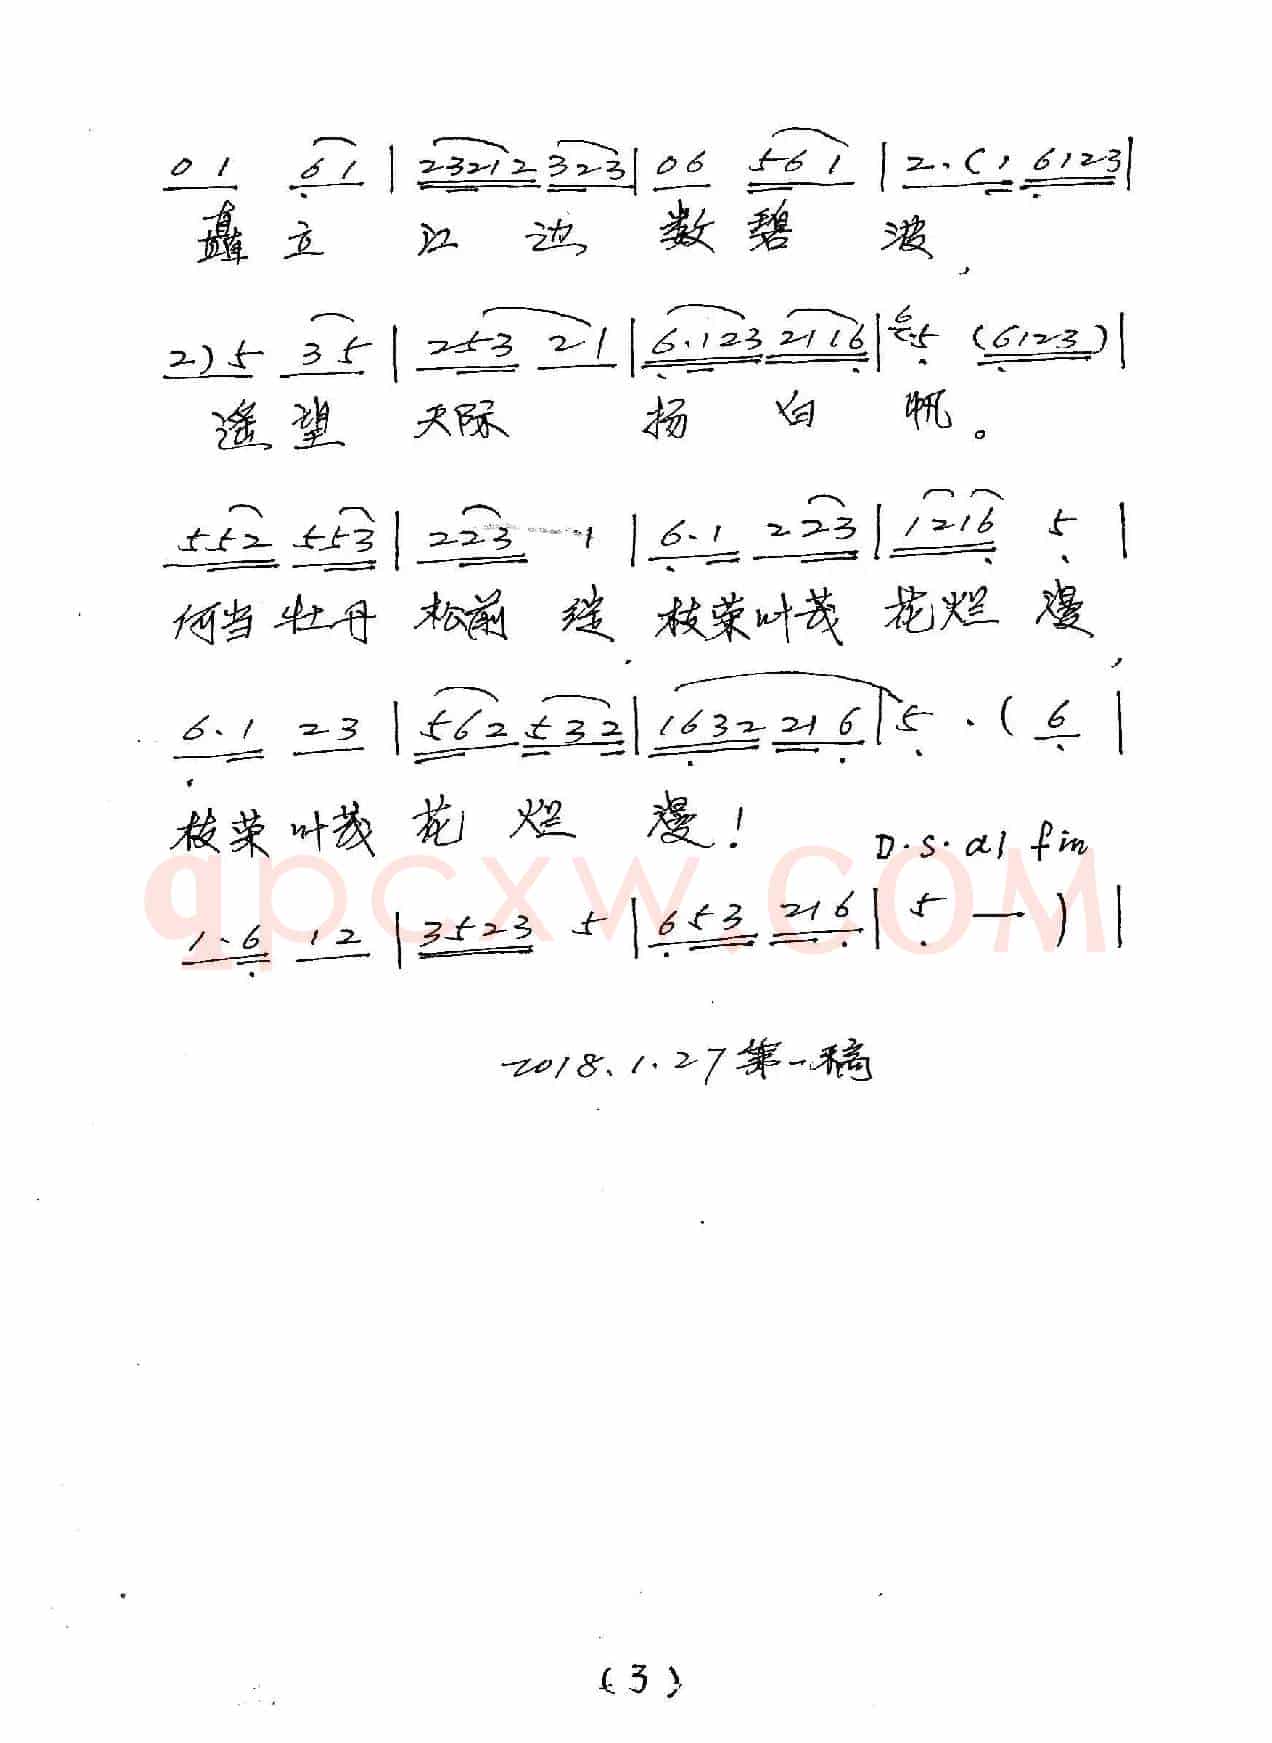 0 1 6 1 | 23212 323 | 06 561 | 2. ( 1 6123 |
矗立 江 边 数 碧 波,
2) 5 35 | 253 21 | 6.123 2116 | 6 5 (6123) |
遥望 天际 扬 白 帆。
552 553 | 223 1 | 6.1 223 | 1216 5 |
何当牡丹 松前 绽, 枝荣叶茂 花烂 漫,
6.1 23 | 562 532 | 1632 216 | 5 . ( 6 |
枝荣叶茂 花 烂 漫!
D.S. al fin
1.6 12 | 3523 5 | 653 216 | 5 — ) |
qpcxw.COM
2018.1.27第一稿
(3)